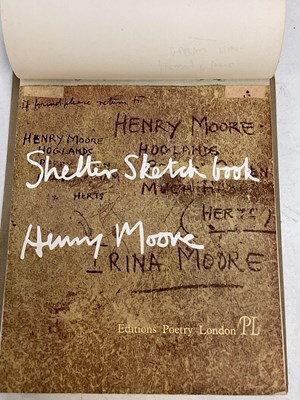 if found please return to
HENRY MOORE
HOGLANDS
HENRY MOORE
HOGLANDS
Shelter Sketch book
MUCH HADHAM
HERTS
(HERTS)
Henry Moore
IRINA MOORE
Editions Poetry London PL